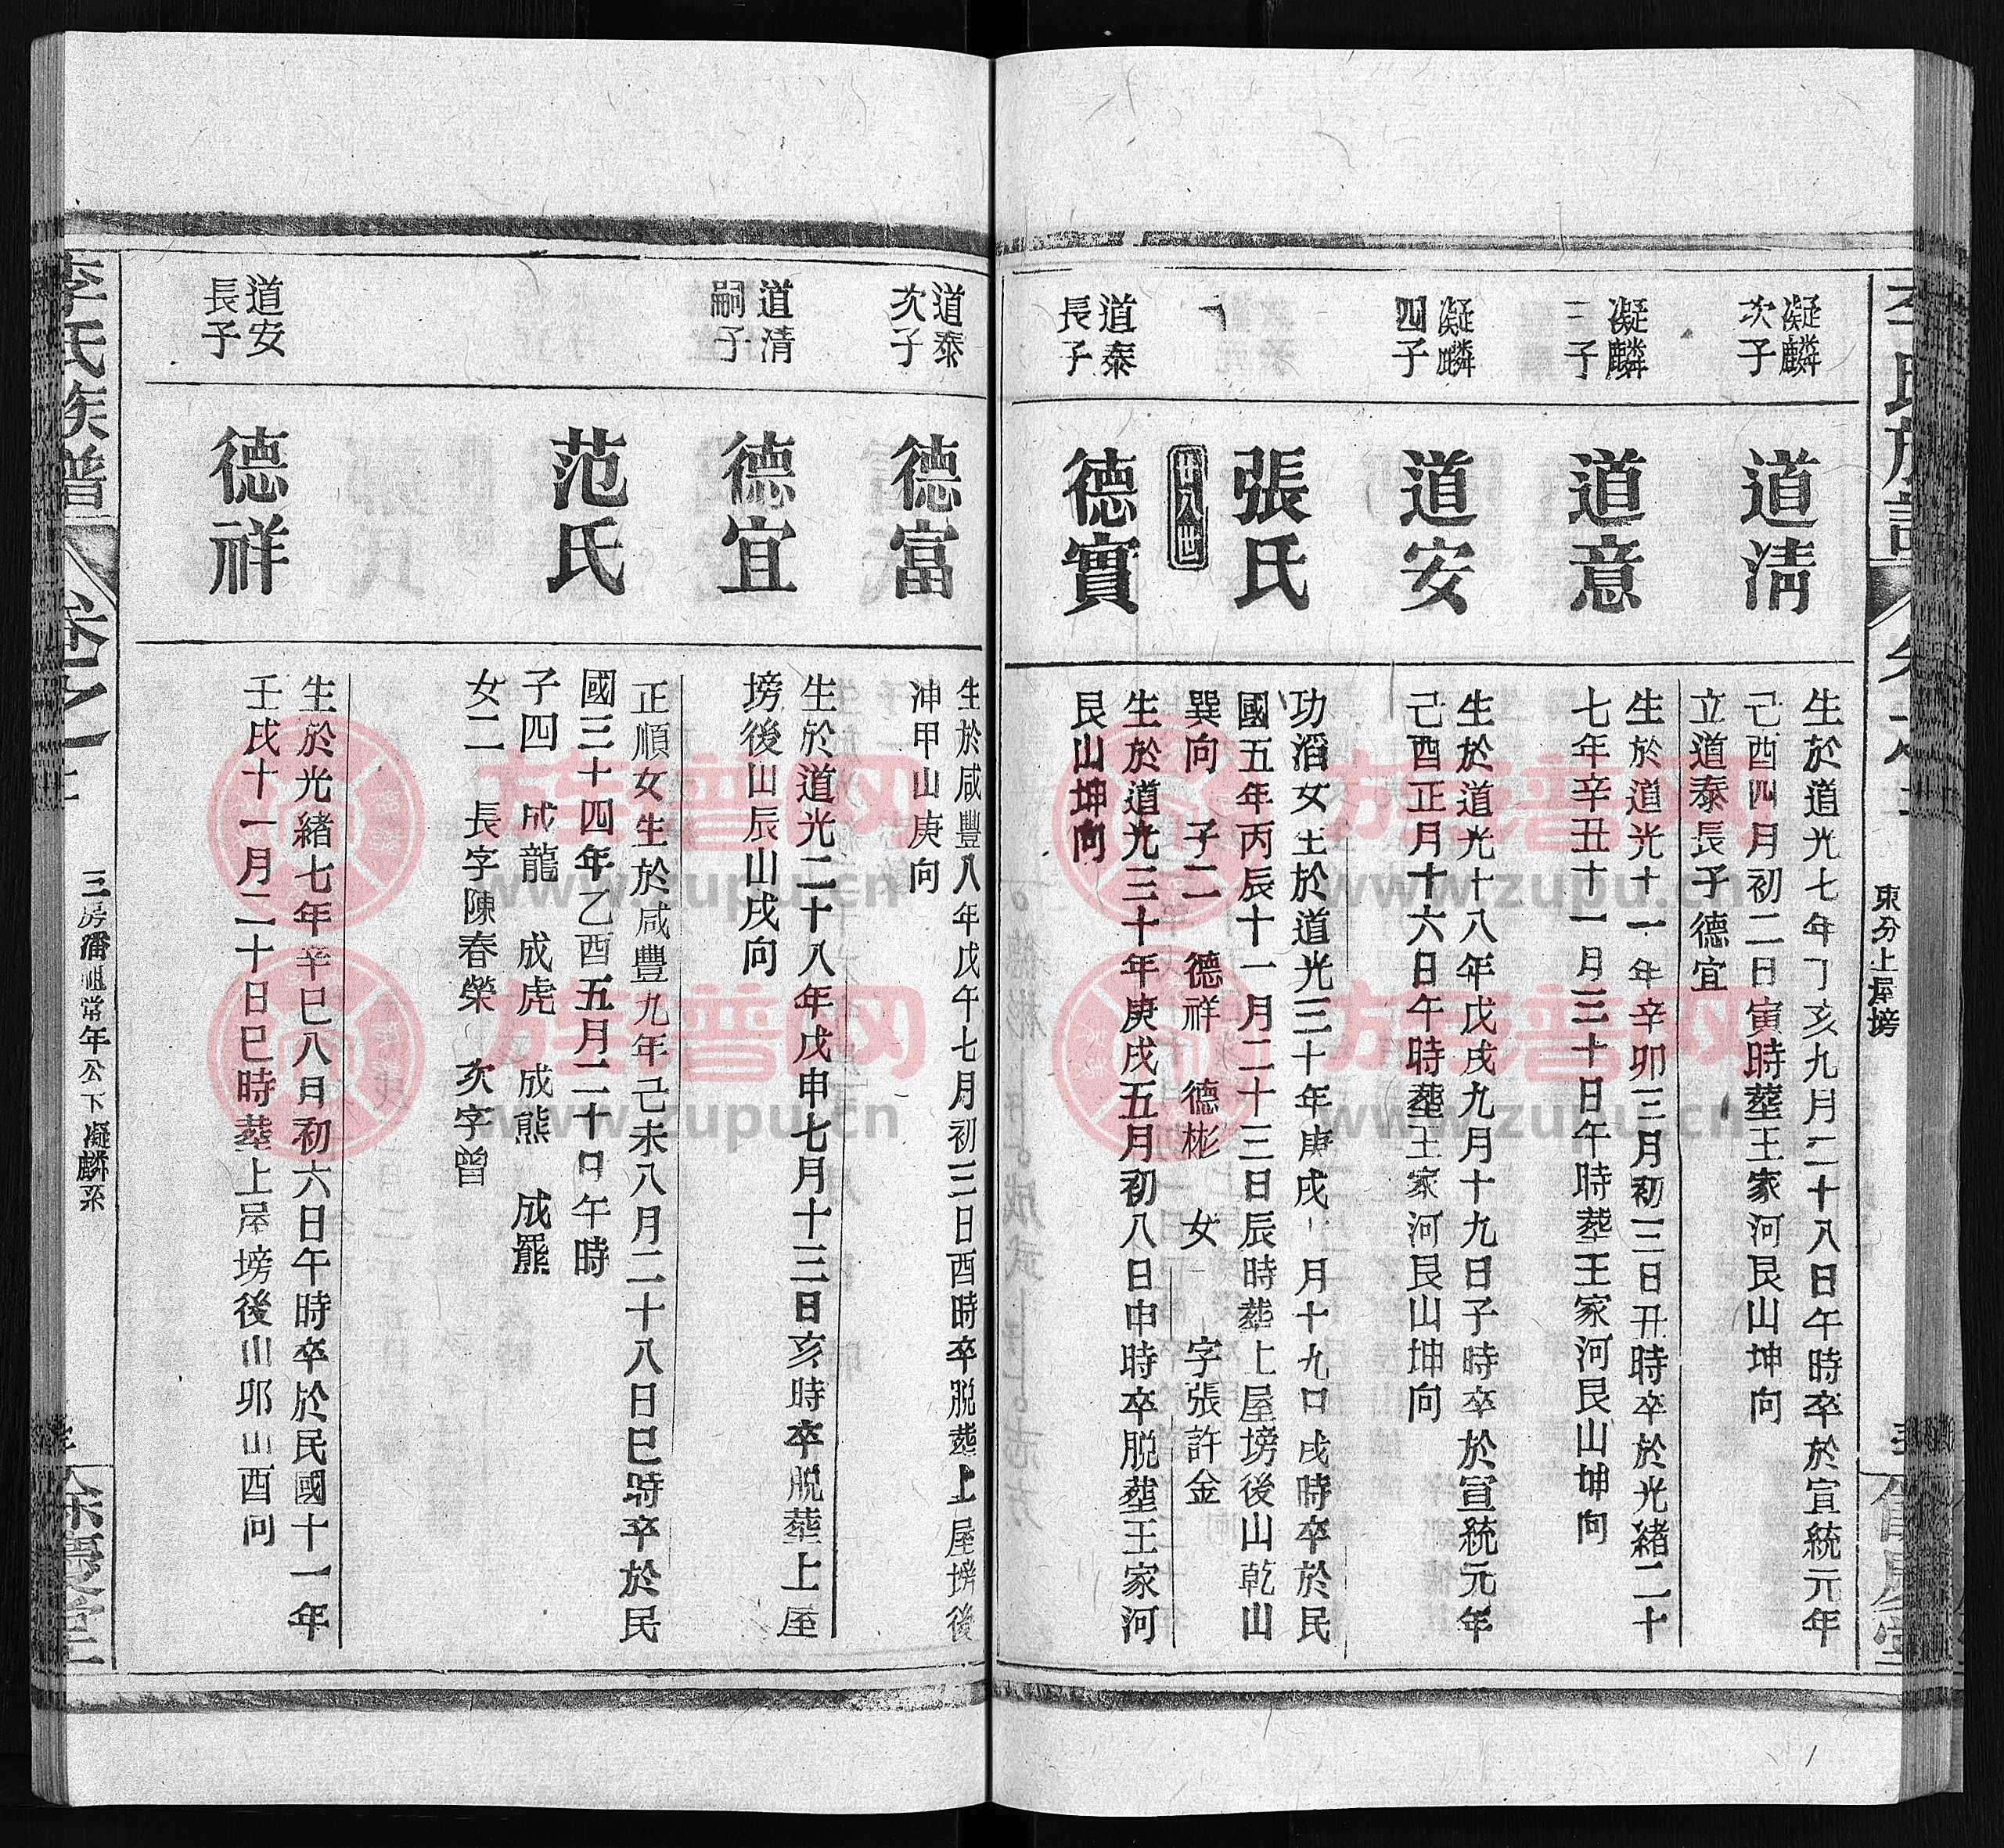 李氏族譜
東分上屋塝
凝麟
次子
道清
生於道光七年丁亥九月二十八日午時卒於宣統元年
己酉四月初二日寅時塟王家河艮山坤向
立道泰長子德宜
凝麟
三子
道意
生於道光十一年辛卯三月初三日丑時卒於光緒二十
七年辛丑十一月三十日午時塟王家河艮山坤向
凝麟
四子
道安
生於道光十八年戊戌九月十九日子時卒於宣統元年
己酉正月十六日午時塟王家河艮山坤向
張氏
功滔女生於道光三十年庚戌 月十九日戌時卒於民
國五年丙辰十一月二十三日辰時塟上屋塝後山乾山
巽向 子二 德祥 德彬 女一 字張許金
廿八世
道泰
長子
德實
生於道光三十年庚戌五月初八日申時卒脱塟王家河
艮山坤向
道泰
次子
德富
生於咸豐八年戊午七月初三日酉時卒脱塟上屋塝後
山甲山庚向
道清
嗣子
德宜
生於道光二十八年戊申七月十三日亥時卒脱塟上屋
塝後山辰山戌向
范氏
正順女生於咸豐九年己未八月二十八日巳時卒於民
國三十四年乙酉五月二十日午時
子四 成龍 成虎 成熊 成羆
女二 長字陳春榮 次字曾
道安
長子
德祥
生於光緒七年辛巳八月初六日午時卒於民國十一年
壬戌十一月二十日巳時塟上屋塝後山卯山酉向
李氏族譜
卷之
三房潘祖常年公下凝麟系
餘慶堂
族谱网
www.zupu.cn
族谱网
www.zupu.cn
族谱网
www.zupu.cn
族谱网
www.zupu.cn